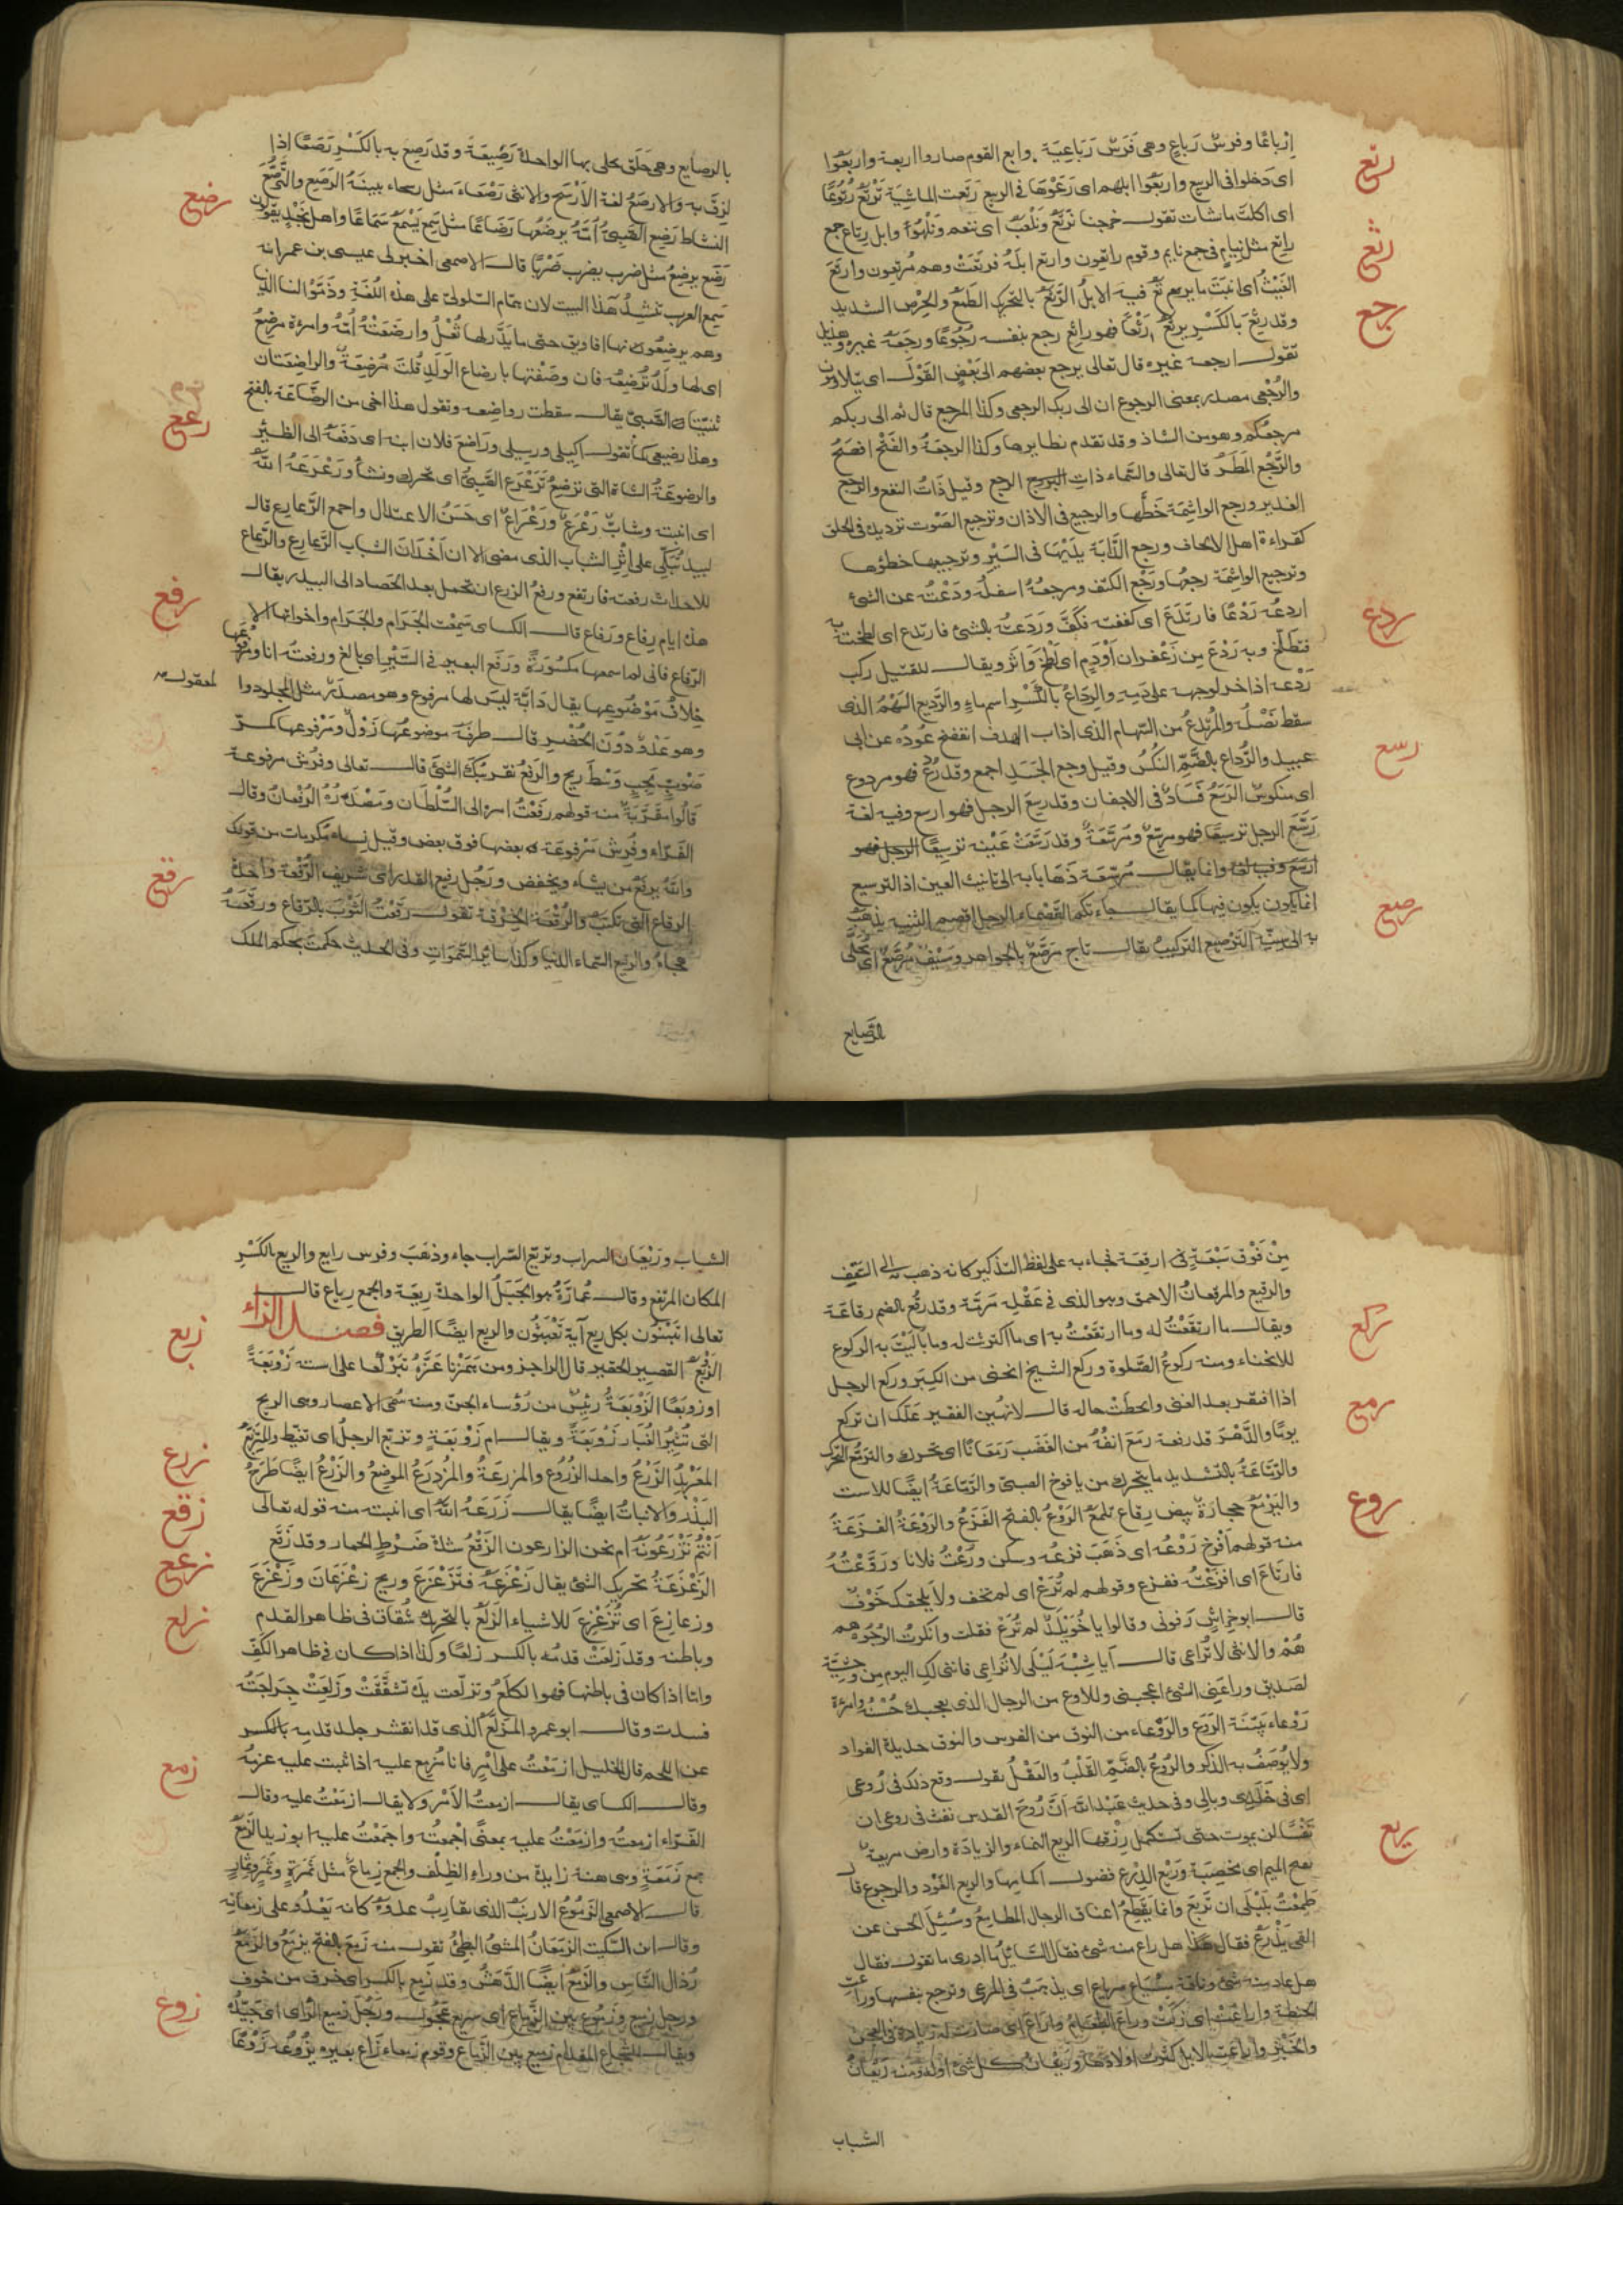 إرباعا وفرس رباع وهي فرس رباعية وابع القوم صاروا اربعة واربعوا
رتع
اى دخلوا فى الربيع واربعوا ابلهم اى رعوها فى الربيع رتعت الماشية ترتع رتوعا
اى اكلت ماشات تقول خرجنا نرتع ونلعب اى ننعم ونلهو وابل رتاع جمع
راتع مثل نيام فى جمع نايم وقوم راتعون وارتع ابله فرتعت وهم مرتعون وارتع
رثع
الغيث اى انبت ما يرتع فيه الابل الرثع بالتحريك الطمع والحرص الشديد
رجع
وقد رثع بالكسر يرثع رثعا فهو راثع رجع بنفسه رجوعا ورجعه غيره وهذيل
تقول ارجعه غيره قال تعالى يرجع بعضهم الى بعض القول اى يتلاومون
والرجعى مصدر بمعنى الرجوع ان الى ربك الرجعى وكذا المرجع قال ثم الى ربكم
مرجعكم وهو من الشاذ وقد تقدم نظايرها وكذا الرجعة والفتح افصح
والرجع المطر قال تعالى والسماء ذات الرجع وقيل ذات النفع والرجع
الغدير ورجع الواشمة خطها والرجيع فى الاذان وترجيع الصوت ترديده فى الحلق
كقراءة اهل الالحاف ورجع الدابة يديها فى السير وترجيعها خطوها
وترجيع الواشمة رجعها ورجع الكتف ومرجعه اسفله ودعت عن الشئ
ردع
اردعه ردعا فارتدع اى كففته فكف وردعته بالشئ فارتدع اى لطخته به
فتطلخ وبه ردع من زعفران او دم اى لطخ واثر ويقال للقتيل ركب
ردعه اذا خر لوجهه على دمه والرداع بالكسر اسم ماء والرديع السهم الذى
سقط نصله والمرتدع من السهام الذى اذاب الهدف انفضخ عوده عن ابى
عبيد والرداع بالضم النكس وقيل وجع الجسد اجمع وقد ردع فهو مردوع
رسع
اى منكوس الرسع فساد فى الاجفان وقد رسع الرجل فهو ارسع وفيه لغة
رسع الرجل ترسيعا فهو مرسع ومرسعة وقد رسعت عينه ترسيعا الرجل فهو
ارسع وفيه لغة وانما يقال مرسعة ذهابا به الى تانيث العين اذ الترسيع
انما يكون يكون فيها كما يقال جاءتكم القصماء الرجل اقصم الثنية يذهب
رصع
به الى سنه الترصيع التركيب يقال تاج مرصع بالجواهر وسيف مرصع اى محلى
الرصايع
بالرصايع وهى حلق يحلى بها الواحدة رصيعة وقد رصع به بالكسر رصعا اذا
لزق به والارصع لغة الارسح والانثى رصعاء مثل رسحاء بينة الرصع والترصع
رضع
النشاط رضع الصبى امه يرضعها رضاعا مثل سمع يسمع سماعا واهل نجد يقولون
رضع يرضع مثل ضرب يضرب ضربا قال الاصمعى اخبرنى عيسى بن عمر انه
سمع العرب تنشد هذا البيت لابن همام السلولى على هذه اللغة وذموا لنا الدنيا
وهم يرضعونها افاويق حتى ما يدر لها ثعل وارضعته امه وامرءة مرضع
اى لها ولد ترضعه فان وصفتها بارضاع الولد قلت مرضعة والراضعتان
ثنيتا الصبى يقال سقطت رواضعه وتقول هذا اخى من الرضاعة بالفتح
وهذا رضيعى كما تقول اكيلى ورسيلى وراضع فلان ابنه اى دفعه الى الظئر
رعع
والرضوعة الشاة التى ترضع ترعرع الصبى اى تحرك ونشأ ورعرعه الله
اى انبته وشاب رعرع ورعراع اى حسن الاعتدال واجمع الرعارع قال
لبيد تبكى على اثر الشباب الذى مضى الا ان اخدان الشباب الرعارع والرعاع
رفع
للاحداث رفعته فارتفع ورفع الزرع ان يحمل بعد الحصاد الى البيدر يقال
هذه ايام رفاع ورفاع قال الكساى سمعت الجرام والجرام واخواتها الا
الرفاع فانى لم اسمعها مكسورة ورفع البعير فى السير اى بالغ ورفعته انا ومرفوعها
خلاف موضوعها يقال دابة ليس لها مرفوع وهو مصدر مثل المجلود والمعقول
وهو عدو دون الحضر قال طرفة موضوعها زول ومرفوعها كمر
صوب لجب وسط ريح والرفع تقريبك الشئ قال تعالى وفرش مرفوعة
قالوا مقربة منه قولهم رفعت امره الى السلطان ومصدره الرفعان وقال
الفراء وفرش مرفوعة بعضها فوق بعض وقيل نساء مكرمات من قولك
والله يرفع من يشاء ويخفض ورجل رفيع القدر اى شريف الرقعة واحدة
رقع
الرقاع التى تكتب والرقعة الخرقة تقول رقعت الثوب بالرقاع ورقعه
هجاه والرقيع السماء الدنيا وكذا سائر السموات وفى الحديث حكمت بحكم الملك
من فوق سبعة ارقعة فجاء به على لفظ التذكير كانه ذهب به الى السقف
والرقيع والمرقعان الاحمق وهو الذى فى عقله مرمة وقد رقع بالضم رقاعة
ركع
ويقال ما ارتقعت له وما ارتقعت به اى ما اكترثت له وما باليت به الركوع
للانحناء ومنه ركوع الصلوة وركع الشيخ انحنى من الكبر وركع الرجل
اذا افتقر بعد الغنى وانحطت حاله قال لا تهين الفقير علك ان تركع
رمع
يوما والدهر قد رفعه رمع انفه من الغضب رمعانا اى تحرك والترمع التحرك
والرماعة بالتشديد ما يتحرك من يافوخ الصبى والرماعة ايضا للاست
روع
واليرمع حجارة بيض رقاع تلمع الروع بالفتح الفزع والروعة الفزعة
منه قولهم افرخ روعه اى ذهب فزعه وسكن ورعت فلانا وروعته
فارتاع اى افزعته ففزع وقولهم لم ترع اى لم تخف ولا يلحقك خوف
قال ابو خراش رفونى وقالوا يا خويلد لم ترع فقلت وانكرت الوجوه هم
هم والانثى لا تراعى قال ايا شبه ليلى لا تراعى فاننى لك اليوم من وحشية
لصديق وراعنى الشئ اعجبنى وللاروع من الرجال الذى يعجبك حسنه وامرءة
روعاء بينة الروع والروعاء من النوق من الفرس والنوق حديدة الفواد
ولا يوصف به الذكر والروع بالضم القلب والعقل يقول وقع ذلك فى روعى
اى فى خلدى وبالى وفى حديث عبد الله ان روح القدس نفث فى روعى ان
ريع
نفسا لن يموت حتى تستكمل رزقها الريع النماء والزيادة وارض مريعة
بفتح الميم اى مخصبة وريع الدرع فضول اكمامها والريع العود والرجوع قال
طمعت بليلى ان تريع وانما يقطع اعناق الرجال المطامع وسئل الحسن عن
القى يذرع فقال هل راع منه شئ فقال السائل ما ادرى ما تقول فقال
هل عاد منه شئ وناقة مسياع مرياع اى يذهب فى المرعى وترجع بنفسها وراعت
الحنطة واراعت اى زكت وراع الطعام واراع اى صارت له زيادة فى العجن
والخبز واراعت الابل كثرت اولادها وريعان كل شئ اوله ومنه ريعان
الشباب
الشباب وريعان السراب وتريع السراب جاء وذهب وفرس رايع والريع بالكسر
المكان المرتفع وقال عمارة هو الجبل الواحدة ريعة والجمع رياع قال
تعالى اتبنون بكل ريع آية تعبثون والريع ايضا الطريق فصل الزاء
زبع
الزبع القصير الحقير قال الراجز ومن همزنا عزه تبركعا على استه زوبعة
او زوبعا الزوبعة رئيس من رؤساء الجن ومنه سمى الاعصار وهى الريح
التى تثير الغبار زوبعة ويقال ام زوبعة وتزبع الرجل اى تغيظ والمتزبع
زرع
المعربد الزرع واحد الزروع والمزرعة والمزدرع الموضع والزرع ايضا طرح
البذر والانبات ايضا يقال زرعه الله اى انبته منه قوله تعالى
زقع
أأنتم تزرعونه ام نحن الزارعون الزقع شدة ضرط الحمار وقد زقع
زعع
الزعزعة تحريك الشئ يقال زعزعته فتزعزع وريح زعزعان وزعزع
زلع
وزعازع اى تزعزع للاشياء الزلع بالتحريك شقاق فى ظاهر القدم
وباطنه وقد زلعت قدمه بالكسر زلعا وكذا اذا كان فى ظاهر الكف
واما اذا كان فى باطنها فهو الكلع وتزلعت يده تشققت وزلعت جراحته
فسدت وقال ابو عمرو المزلع الذى قد انقشر جلد قدمه بالكسر
زمع
عن اللحم قال الخليل ازمعت على امر فانا مزمع عليه اذا ثبت عليه عزمه
وقال الكساى يقال ازمعت الامر ولا يقال ازمعت عليه وقال
الفراء ازمعته وازمعت عليه بمعنى اجمعته واجمعت عليه ابو زيد الزمع
جمع زمعة وهى هنة زايدة من وراء الظلف والجمع زماع مثل ثمرة وثمر وثمار
قال الاصمعى الزموع الارنب الذى يقارب عدوه كانه يعدو على زمعاته
وقال ابن السكيت الزمعان المشى البطئ تقول منه زمع بالفتح يزمع والزمع
رذال الناس والزمع ايضا الدهش وقد زمع بالكسر اى خرق من خوف
ورجل زميع وزموع بين الزماع اى سريع عجول ورجل زميع الراى اى جيده
زوع
ويقال للشجاع المقدام زميع بين الزماع وقوم زمعاء زاع بعيره يزوعه زوعا